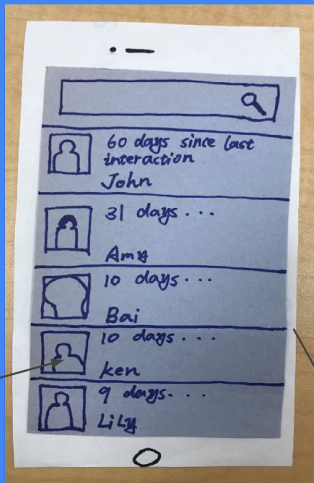 60 days since last
interaction
John
31 days...
Amy
10 days...
Bai
10 days...
ken
9 days...
LiLy